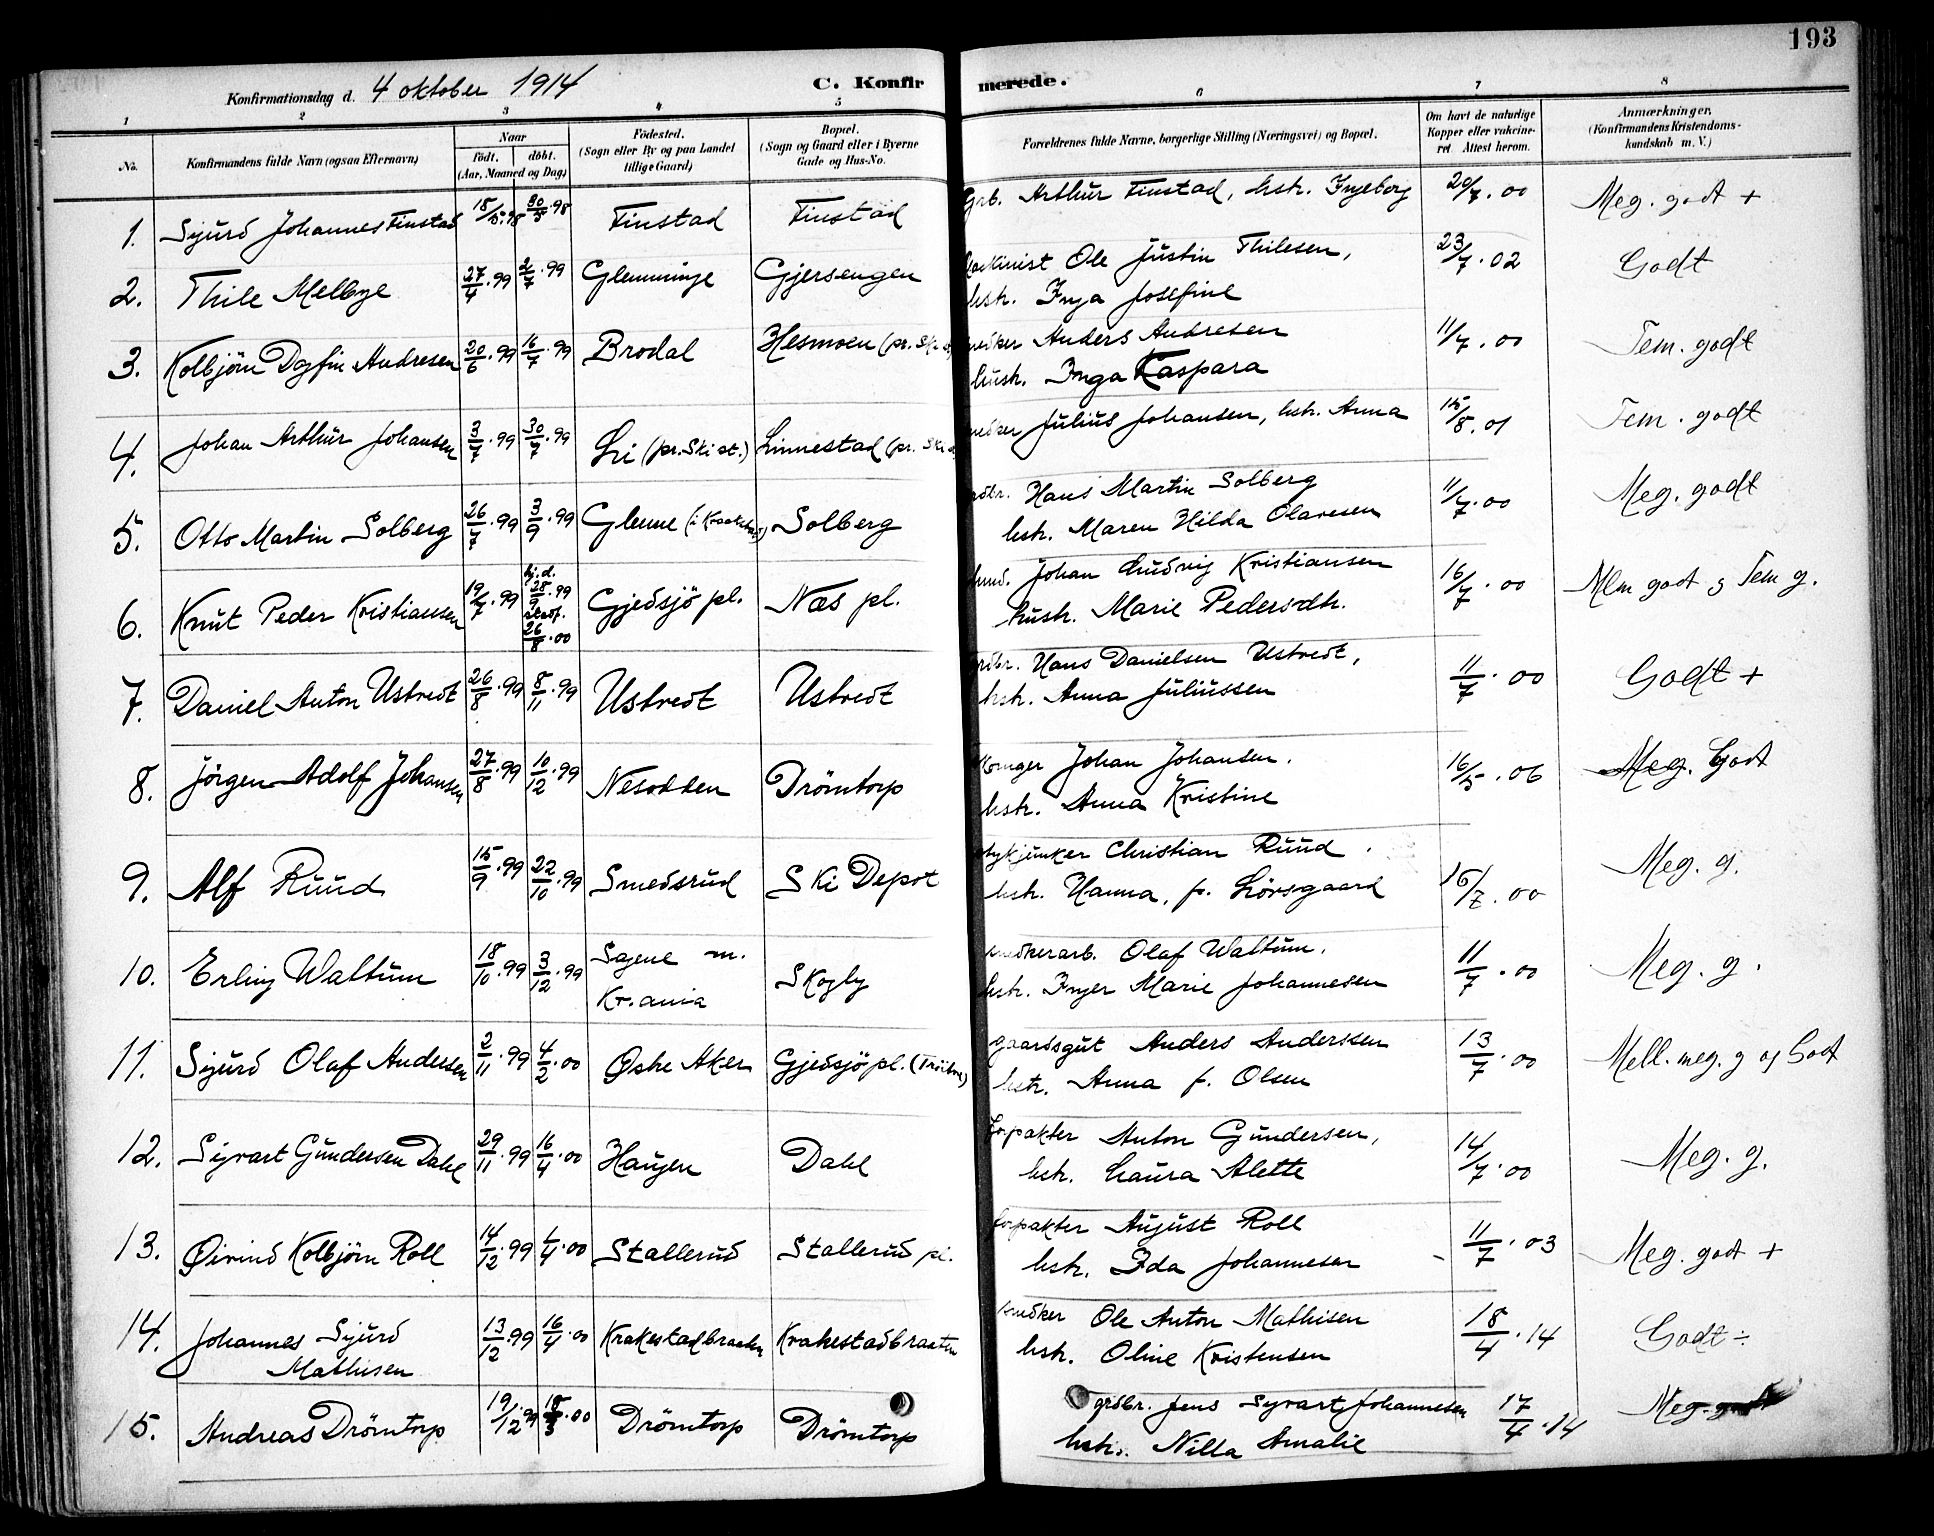 193
Konfirmationsdag d. 4 oktober 1914
C. Konfirmerede.
1 2 3 4 5 6 7 8
No.
Konfirmandens fulde Navn (ogsaa Efternavn)
Naar
født. døbt.
(Aar, Maaned og Dag)
Födested.
(Sogn eller By og paa Landet
tillige Gaard)
Bopæl.
(Sogn og Gaard eller i Byerne
Gade og Hus-No.
Forældrenes fulde Navne, borgerlige Stilling (Næringsvei) og Bopæl.
Om havt de naturlige
Kopper eller vakcine-
ret Attest herom.
Anmærkninger.
(Konfirmandens Kristendoms-
kundskab m. V.)
1. Sigurd Johannes Finstad 18/5.98 30/5.98 Finstad Finstad Grb. Arthur Finstad, hstr. Ingeborg 20/7.00 Meg. godt +
2. Thile Melbye 27/4.99 2/7.99 Glemminge Gjersengen Maskinist Ole Justin Thilesen,
hstr. Inga Josefine 23/7.02 Godt
3. Kolbjörn Dagfin Andresen 20/6.99 16/7.99 Brodal Hesmoen (pr. Ski st. Snedker Anders Andresen
hustr. Inga Kaspara 11/7.00 Tem. godt
4. Johan Arthur Johansen 3/7.99 30/7.99 Li (pr. Ski st.) Linnestad (pr. Ski s. Snedker Julius Johansen, hstr. Anna 15/8.01 Tem. godt
5. Otto Martin Solberg 26/7.99 3/9.99 Glenne (i Kraakstad) Solberg grdbr. Hans Martin Solberg
hstr. Maren Hilda Olavesen 11/7.00 Meg. godt
6. Knut Peder Kristiansen 19/7.99 hj.d. 28/7.99
stadf. 26/8.00 Gjedsjö pl. Næs pl. Johan Ludvig Kristiansen
hustr. Marie Pedersdtr. 16/7.00 Mlm godt og Tem g.
7. Daniel Anton Ustvedt 26/8.99 8/11.99 Ustvedt Ustvedt grdbr. Hans Danielsen Ustvedt,
hstr. Anna Juliussen 11/7.00 Godt +
8. Jörgen Adolf Johansen 27/8.99 10/12.99 Nesodden Drömtorp Johan Johansen.
hstr. Anna Kristine 16/5.06 Meg. Godt
9. Alf Ruud 15/9.99 22/10.99 Smedsrud Ski Depot stykjunker Christian Ruud.
hstr. Hanna, f. Lörsgaard 16/7.00 Meg. g.
10. Erling Waltum 18/10.99 3/12.99 Sagene m.
Kr.ania Skogly snedkerarb. Olaf Waltum.
hstr. Inger Marie Johannesen 11/7.00 Meg. g.
11. Sigurd Olaf Andersen 2/11.99 4/2.00 Østre Aker Gjedsjö pl. gaardsgut Anders Anderssen
hstr. Anna f. Olsen 13/7.00 Mell. meg. g og Godt
12. Sigvart Gundersen Dahl 29/11.99 16/4.00 Haugen Dahl Forpakter Anton Gundersen,
hstr. Laura Alette 14/7.00 Meg. g.
13. Øivind Kolbjörn Roll 14/12.99 1/4.00 Stallerud Stallerud pl. forpakter August Roll
hstr. Ida Johannesen - 11/7.03 Meg. godt +
14. Johannes Sigurd
Mathisen 13/12.99 16/4.00 Krakestadbraaten Krakestadbraaten snedker Ole Anton Mathisen
hstr. Oline Kristensen 18/4.14 Godt ÷
15. Andreas Drömtorp 19/12.99 18/3.00 Drömtorp Drömtorp grdbr. Jens Sigvart Johannesen
hstr. Nilla Amalie 17/4.14 Meg. godt